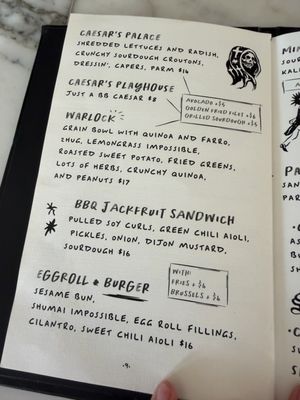 CAESAR'S PALACE
SHREDDED LETTUCES AND RADISH,
CRUNCHY SOURDOUGH CROUTONS,
DRESSIN', CAPERS, PARM $16
CAESAR'S PLAYHOUSE
JUST A BB CAESAR $8
AVOCADO +$4
GOLDEN FRIED FILES +$6
GRILLED SOURDOUGH +$4
WARLOCK
GRAIN BOWL WITH QUINOA AND FARRO,
ZHUG, LEMONGRASS IMPOSSIBLE,
ROASTED SWEET POTATO, FRIED GREENS,
LOTS OF HERBS, CRUNCHY QUINOA,
AND PEANUTS $17
BBQ JACKFRUIT SANDWICH
PULLED SOY CURLS, GREEN CHILI AIOLI,
PICKLES, ONION, DIJON MUSTARD,
SOURDOUGH $16
EGGROLL BURGER
WITH:
FRIES +$6
BRUSSELS +$6
SESAME BUN,
SHUMAI IMPOSSIBLE, EGG ROLL FILLINGS,
CILANTRO, SWEET CHILI AIOLI $16